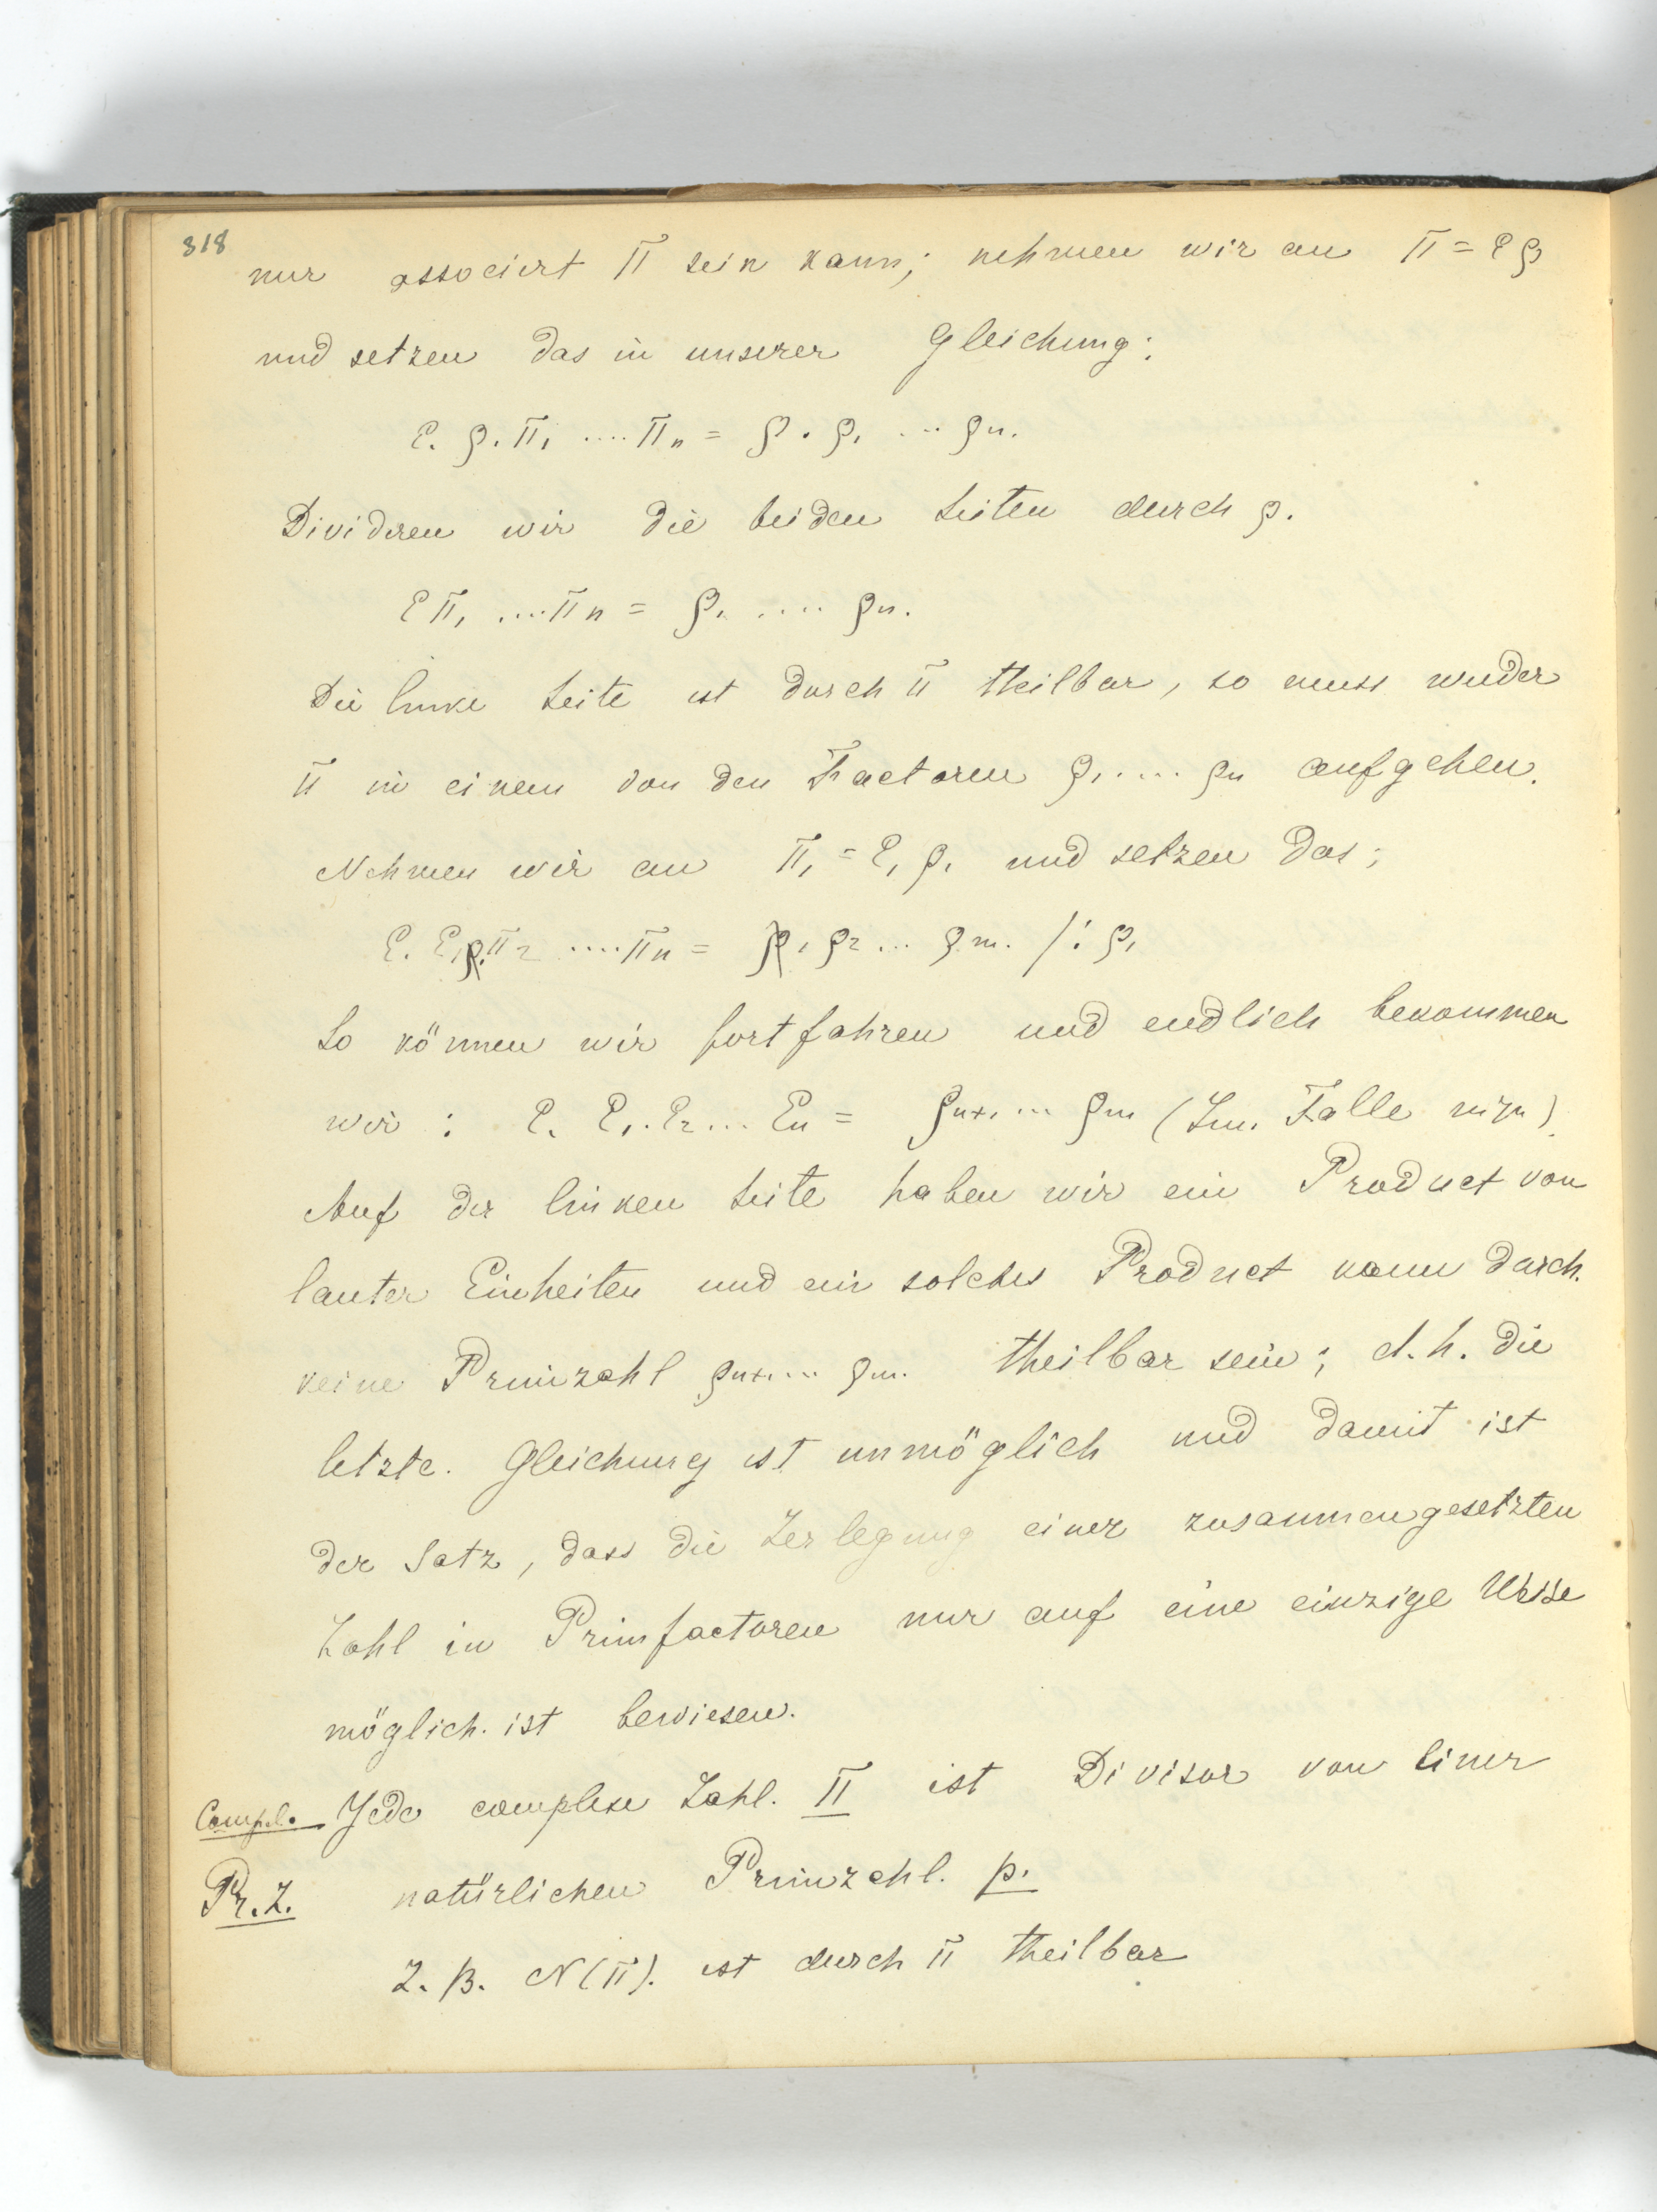 318
nur associert π sein kann; nehmen wir an π = ε ρ
und setzen das in unserer Gleichung:
ε. ρ. π₁ .... πₙ = ρ . ρ₁ ... ρₙ.
Divideren wir die beiden Seiten durch ρ.
ε π₁ .... πₙ = ρ₁ .... ρₙ.
Die linke Seite ist durch π theilbar, so muss wieder
π in einem von den Factoren ρ₁ .... ρₙ aufgehen.
Nehmen wir an π₁ = ε₁ ρ₁ und setzen das:
ε. ε₁ρ₁π₂ .... πₙ = ρ₁ ρ₂ ... ρₘ. /: ρ₁
So können wir fortfahren und endlich bekommen
wir : ε. ε₁. ε₂ ... εₙ = ρₙ₊₁ ... ρₘ (Im. Falle m>n).
Auf der linken Seite haben wir ein Product von
lauter Einheiten und ein solches Product kann durch.
keine Primzahl ρₙ₊₁ ... ρₘ. theilbar sein; d.h. die
letzte. Gleichung ist unmöglich und damit ist
der Satz, dass die Zerlegung einer zusammengesetzten
Zahl in Primfactoren nur auf eine einzige Weise
möglich. ist bewiesen.
Compl. Jede complexe Zahl. π ist Divisor von einer
Pr. Z. natürlichen Primzahl. p.
Z. B. N(π). ist durch π theilbar